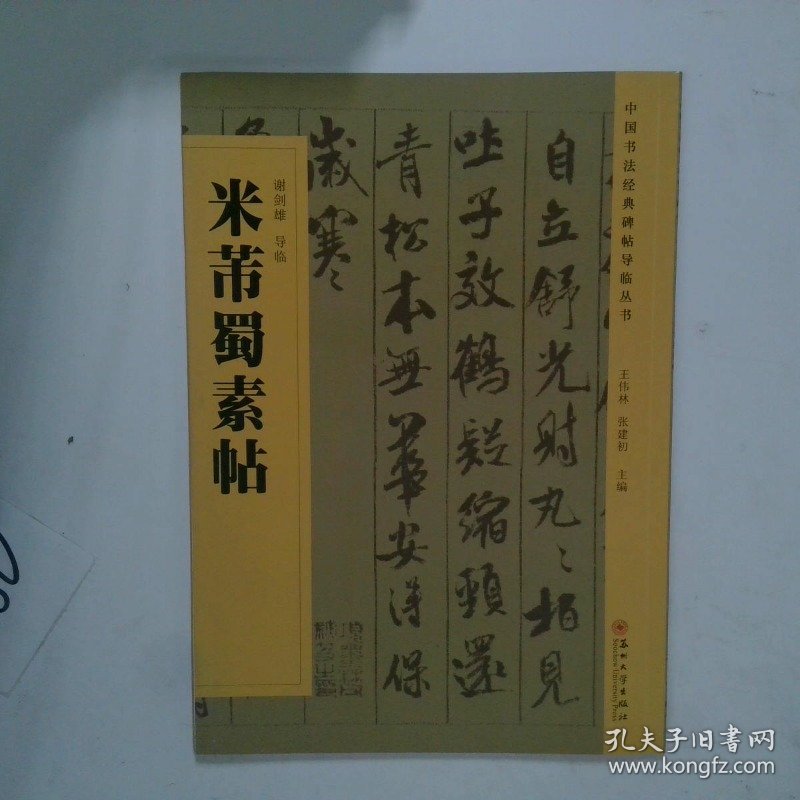 中国书法经典碑帖导临丛书
王伟林 张建初 主编
谢剑雄 导临
米芾蜀素帖
自立舒光射丸〻柏见
吐子效鹤疑缩颈还
青松本無華安得保
歲寒
苏州大学出版社
Soochow University Press
孔夫子旧书网
www.kongfz.com